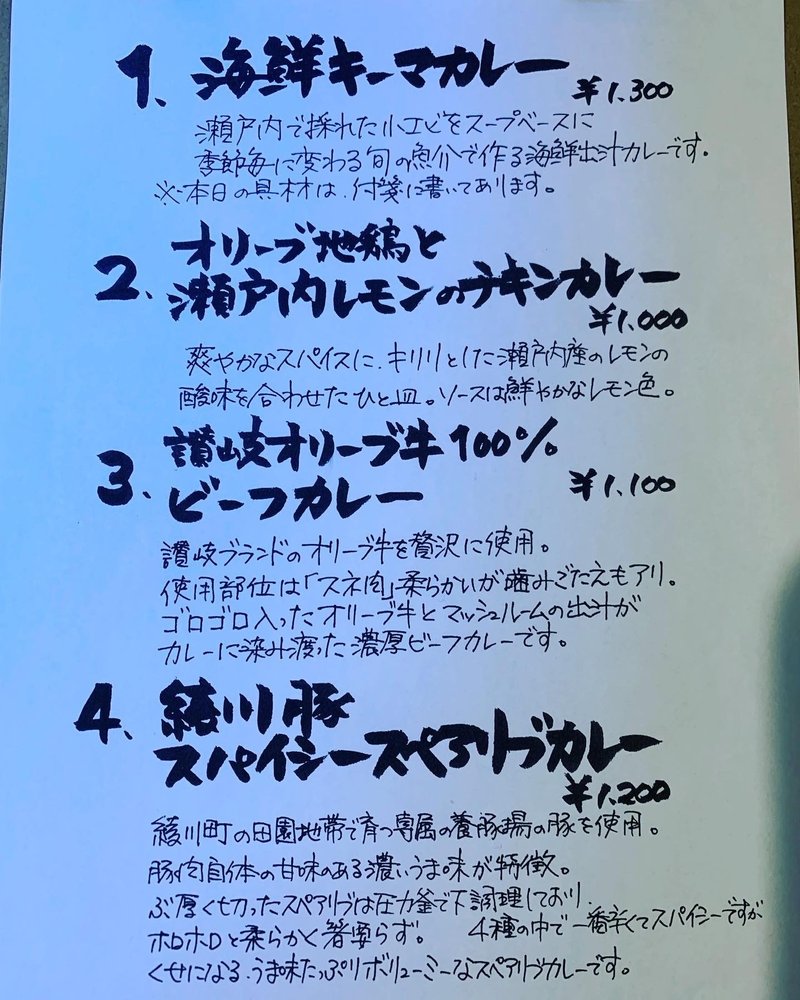 1. 海鮮キーマカレー
¥1.300
瀬戸内で採れた小エビをスープベースに
季節毎に変わる旬の魚介で作る海鮮出汁カレーです。
※本日の具材は、付箋に書いてあります。
2. オリーブ地鶏と
瀬戸内レモンのチキンカレー
¥1.000
爽やかなスパイスに、キリリとした瀬戸内産のレモンの
酸味を合わせたひと皿。ソースは鮮やかなレモン色。
3. 讃岐オリーブ牛100%
ビーフカレー
¥1.100
讃岐ブランドのオリーブ牛を贅沢に使用。
使用部位は「スネ肉」柔らかいが噛みごたえもアリ。
ゴロゴロ入ったオリーブ牛とマッシュルームの出汁が
カレーに染み渡った濃厚ビーフカレーです。
4. 綾川豚
スパイシースペアリブカレー
¥1.200
綾川町の田園地帯で育つ専属の養豚場の豚を使用。
豚肉自体の甘味のある濃いうま味が特徴。
ぶ厚く切ったスペアリブは圧力釜で下調理しており、
ホロホロと柔らかく箸要らず。 4種の中で一番辛くてスパイシーですが
くせになる、うま味たっぷりボリューミーなスペアリブカレーです。